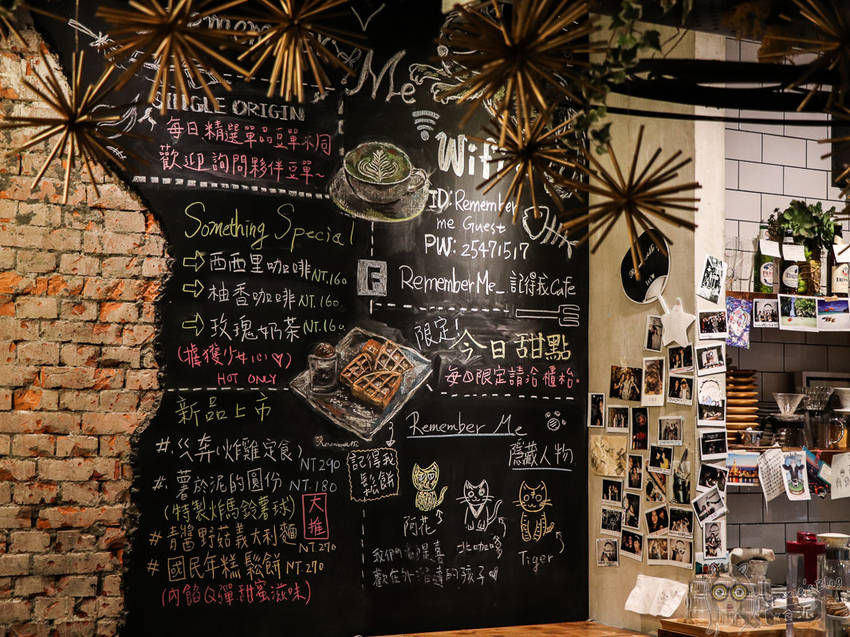 Me
SINGLE ORIGIN
每日精選單品豆單不同
歡迎詢問夥伴豆單~
Wifi
ID: Remember
me Guest
PW: 25471517
RememberMe_記得我Cafe
Something Special
西西里咖啡 NT.160
柚香咖啡 NT.160
玫瑰奶茶 NT.160
(擄獲少女心♡)
HOT ONLY
限定!
今日甜點
每日限定請洽櫃枱.
新品上市
#.災奔(炸雞定食) NT 290
#.薯於泥的圓份 NT.180
(特製炸馬鈴薯球)
大推
#青醬野菇義大利麵 NT.270
#國民年糕鬆餅 NT 270
(內餡Q彈甜蜜滋味)
Remember Me
記得我
鬆餅
隱藏人物
阿花
Tiger